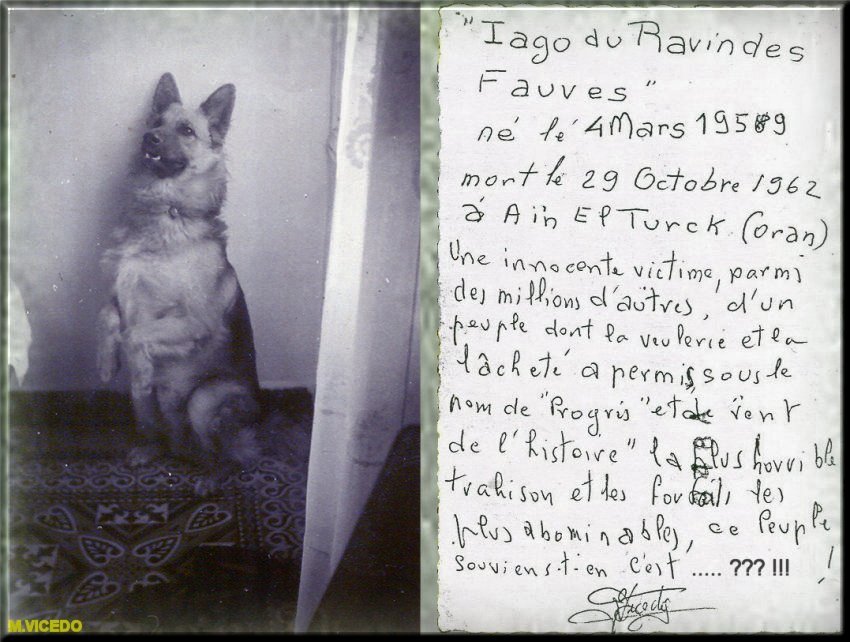 "Iago du Ravin des
Fauves"
né lé 4 Mars 1959
mort le 29 Octobre 1962
à Aïn El Turck (Oran)
Une innocente victime, parmi
des millions d'autres, d'un
peuple dont la veulerie et la
lâcheté a permis, sous le
nom de "Progris" et de "vent
de l'histoire" la plus horrible
trahison et les forfaits les
plus abominables, ce peuple
souviens-t-en c'est ..... ??? !!! !
M.VICEDO